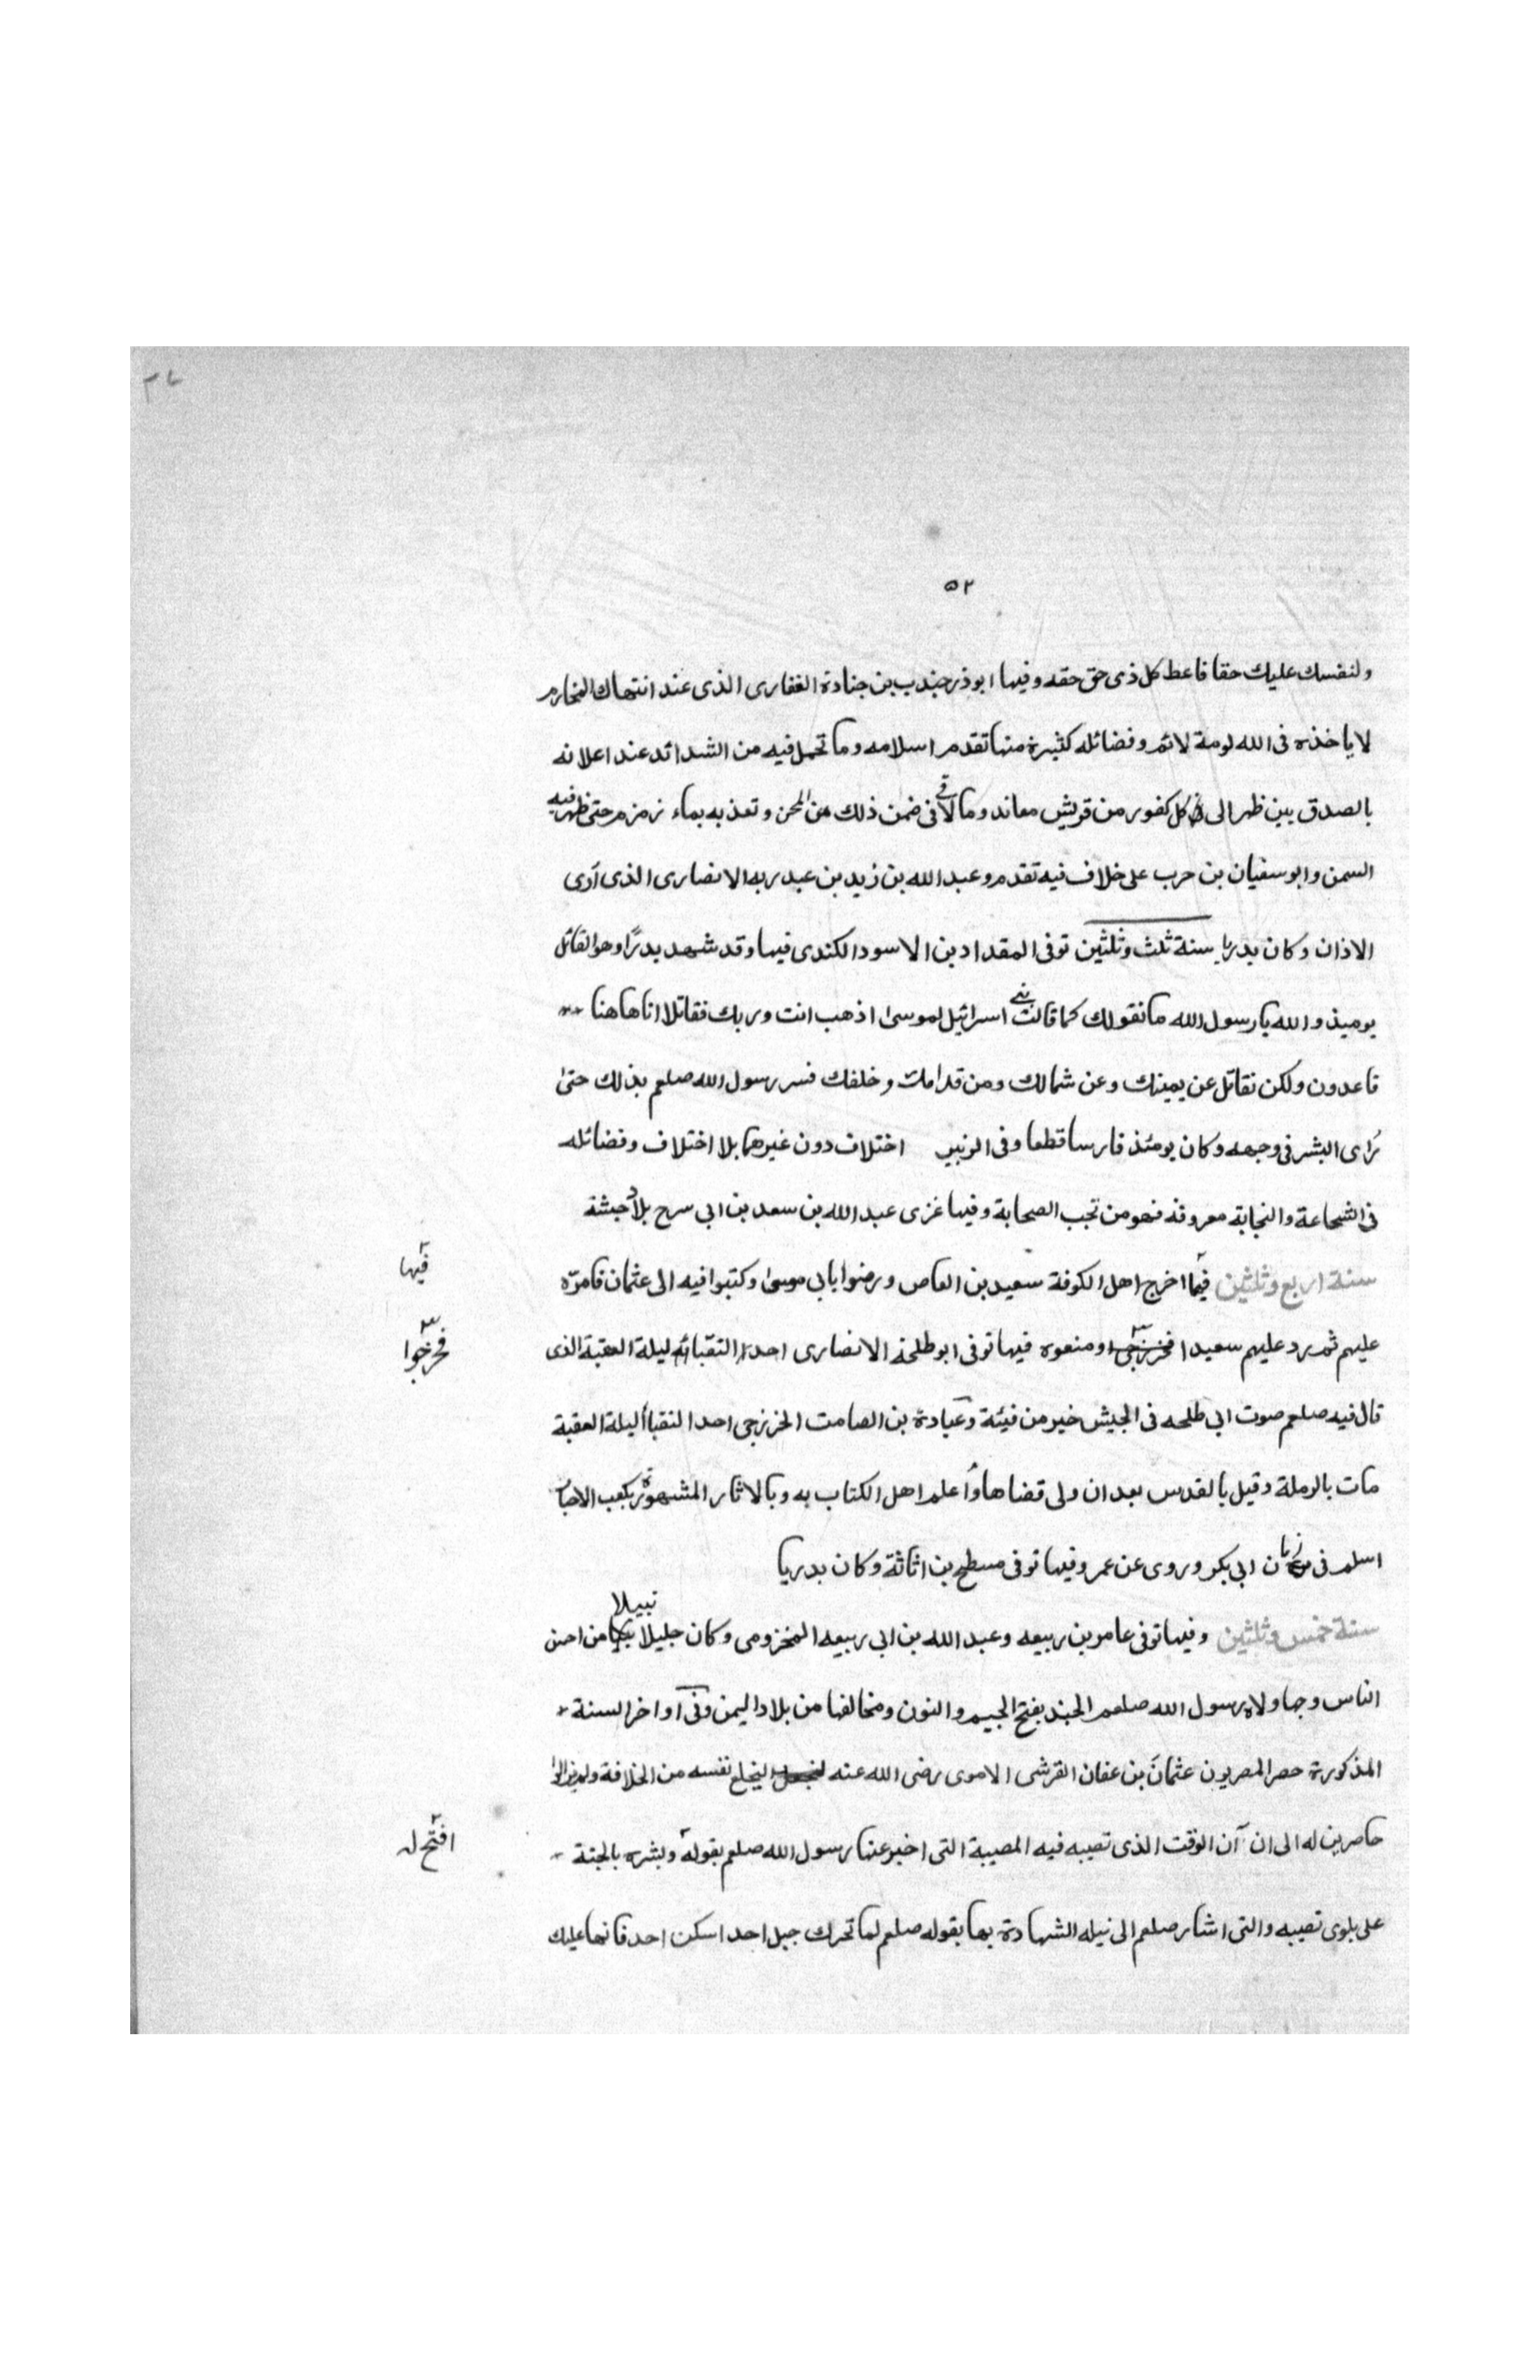 ٥٢
ولنفسك عليك حقا فاعط كل ذى حق حقه وفيها ابوذر جندب بن جنادة الغفارى الذى عند انتهاك المحارم
لا ياخذه فى الله لومة لائم وفضائله كثيرة منها تقدم اسلامه وما تحمل فيه من الشدائد عند اعلانه
بالصدق بين ظهرالى كل كفور من قريش معاند وما لاقى فى ضمن ذلك من المحن وتعذبه بماء زمزم حتى ظهر فيه
السمن وابو سفيان بن حرب على خلاف فيه تقدم وعبد الله بن زيد بن عبد ربه الانصارى الذى أرى
الاذان وكان بدريا سنة ثلث وثلثين توفى المقداد بن الاسود الكندى فيها وقد شهد بدرًا وهو القائل
يوميذ والله يا رسول الله ما نقولك كما قالت بنى اسرائيل لموسى اذهب انت وربك فقاتلا انا هاهنا
قاعدون ولكن نقاتل عن يمينك وعن شمالك ومن قدامك وخلفك فسر رسول الله صلعم بذلك حتى
رُاى البشر فى وجهه وكان يومئذ فارسا قطعا وفى الزبير اختلاف دون غيرهما بلا اختلاف وفضائله
فى الشجاعة والنجابة معروفه فهو من نجب الصحابة وفيها غزى عبد الله بن سعد بن ابى سرح بلاد حبشة
سنة اربع وثلثين فيها اخرج اهل الكوفة سعيد بن العاص ورضوا بابى موسى وكتبوا فيه الى عثمان فامرّه
فيها
عليهم ثم رد عليهم سعيدا ومنعوه فيها توفى ابو طلحة الانصارى احد النقبا ليلة العقبة الذى
فخرجوا
قال فيه صلعم صوت ابى طلحه فى الجيش خير من فيئة وعبادة بن الصامت الخزرجى احد النقباأ ليلة العقبة
مات بالرملة وقيل بالقدس بعد ان ولى قضاها وأعلم اهل الكتاب به وبالاثار المشهورة بكعب الاحبار
اسلم فى زمان ابى بكر وروى عن عمر وفيها توفى مسطح بن اثاثة وكان بدريا
سنة خمس وثلثين وفيها توفى عامر بن ربيعه وعبد الله بن ابى ربيعه المخزومى وكان جليلا نبيلا من احسن
الناس وجها ولاه رسول الله صلعم الجند بفتح الجيم والنون ومخالفها من بلاد اليمن وفى اواخر السنة
المذكورة حصر المصريون عثمان بن عفان القرشى الاموى رضى الله عنه ليخلع نفسه من الخلافة ولم يزالوا
حاصرين له الى ان آن الوقت الذى تصيبه فيه المصيبة التى اخبر عنها رسول الله صلعم بقوله وبشره بالجنة
افتح له
على بلوى تصيبه والتى اشار صلعم الى نيله الشهادة بها بقوله صلعم لما تحرك جبل احد اسكن احد فانما عليك